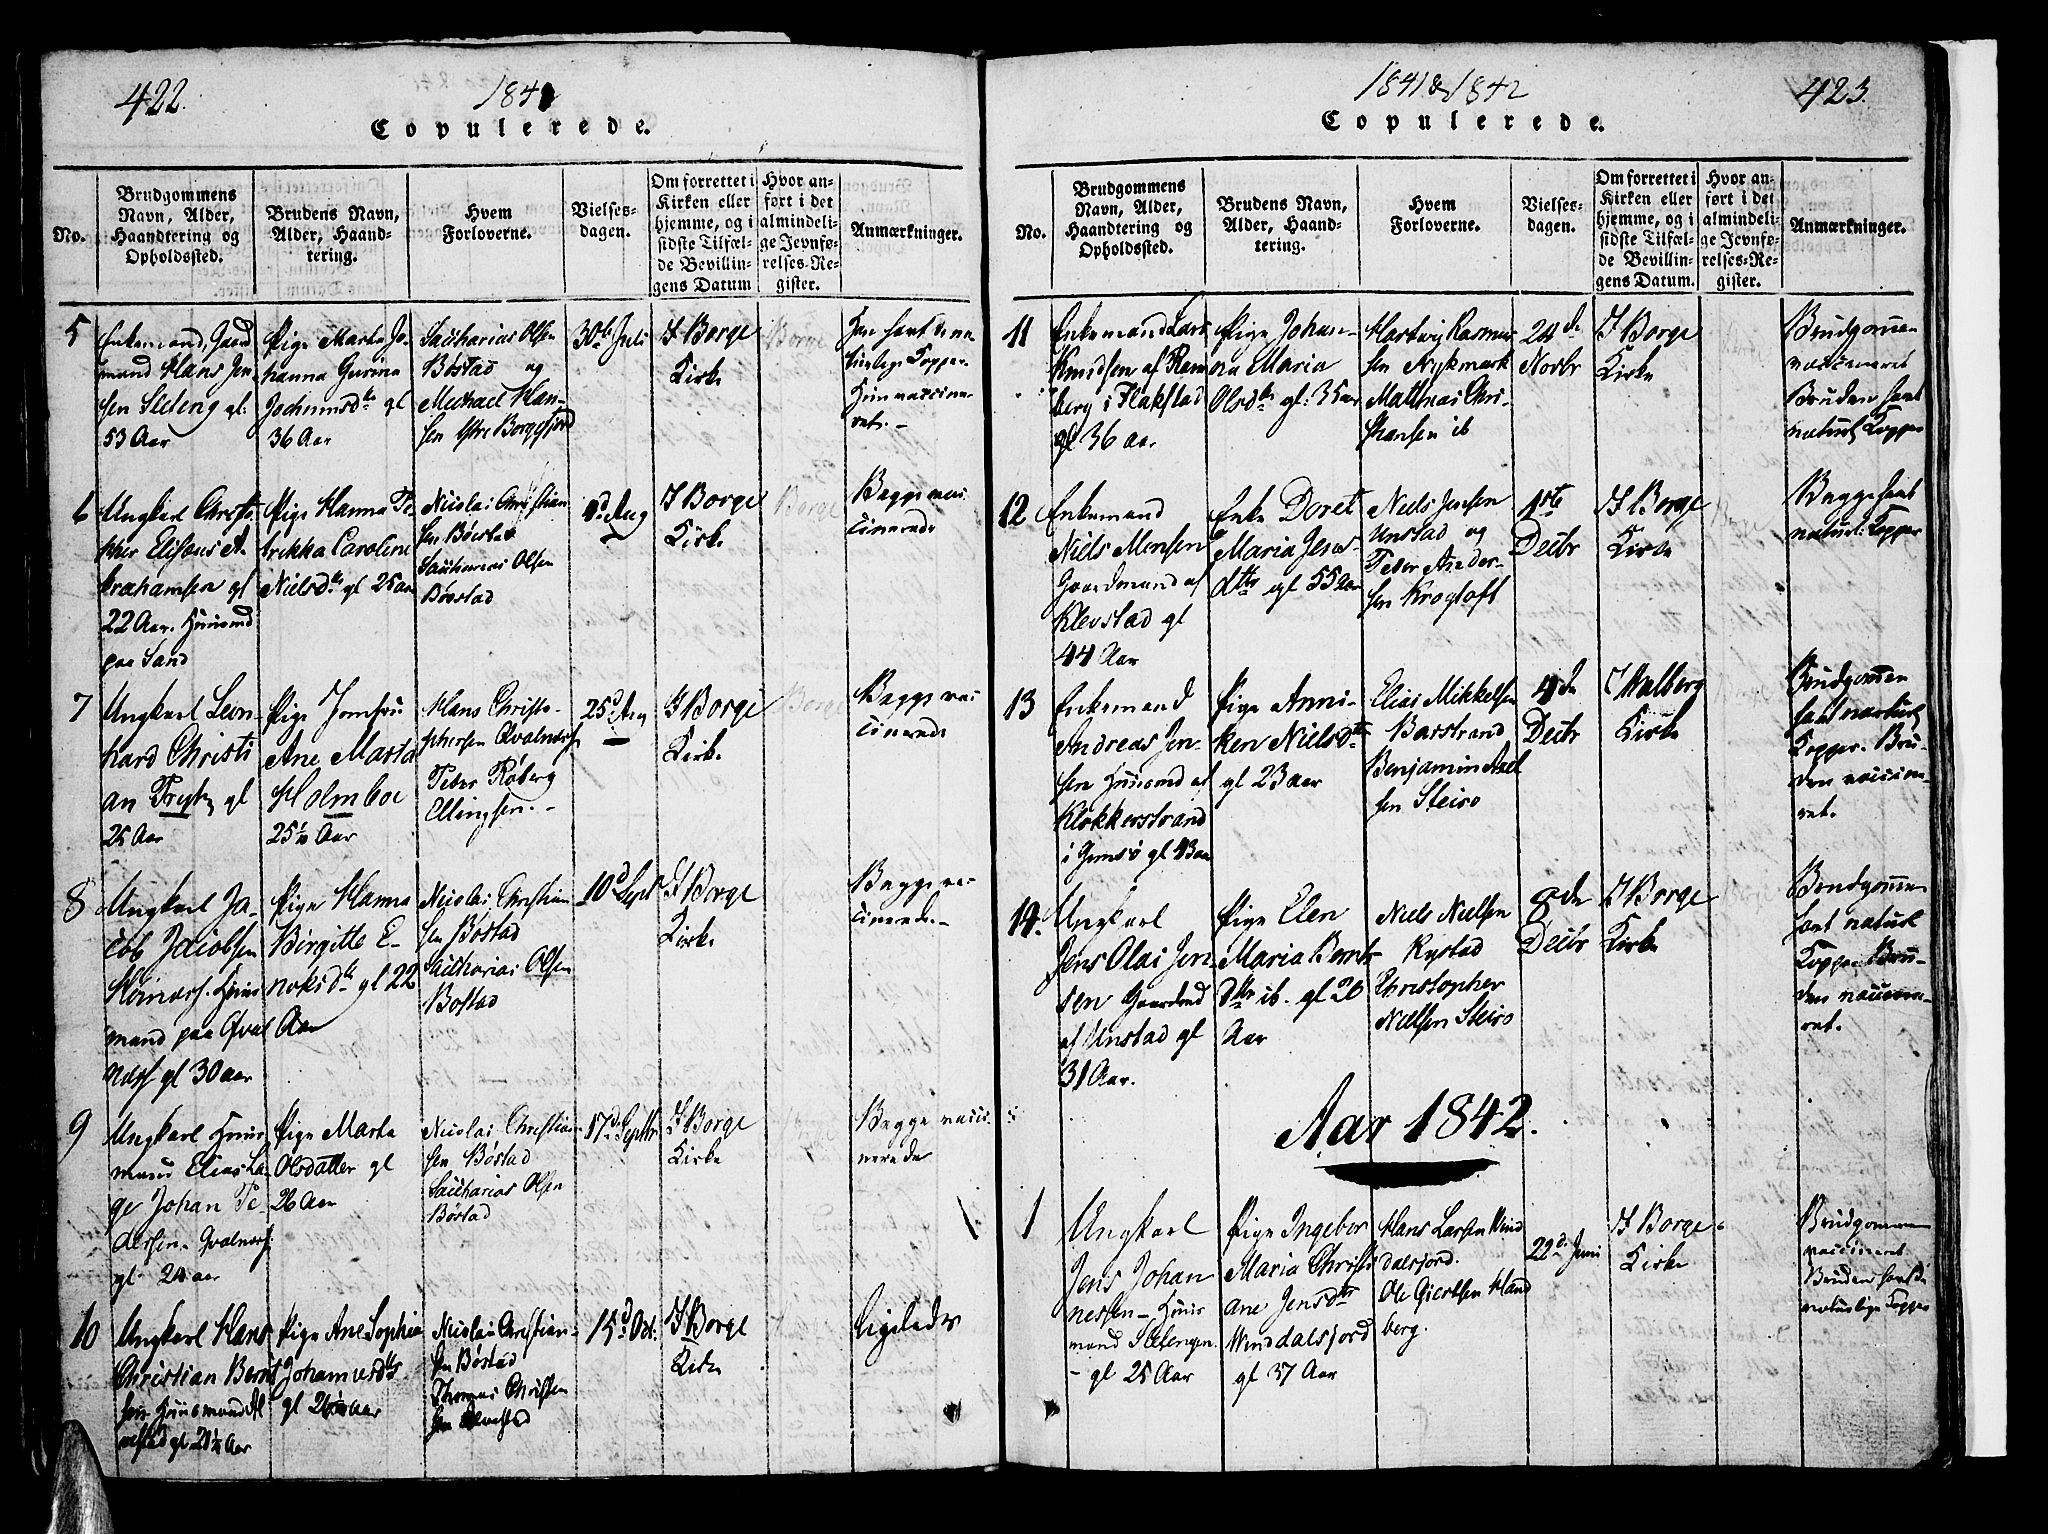 422.
1841
Copulerede.
No.
Brudgommens Navn, Alder, Haandtering og Opholdssted.
Brudens Navn, Alder, Haandtering.
Hvem Forloverne.
Vielsesdagen.
Om forrettet i Kirken eller hjemme, og i sidste Tilfælde Bevillingens Datum
Hvor anført i det almindelige Jevnførelses-Register.
Anmærkninger.
5
Enkemand, Gaard
mand Hans Jen
sen Sleleng gl:
53 Aar
Pige Marta Jo-
hanna Gurina
Jochumsdtr gl
36 Aar
Sacharias Olsen
Bøstad og
Michael Han-
sen Ystre Borgefjord
30te Juli
I Borge
Kirke
Borge
Han havt de na
turlige Kopper
Hun vaccine-
ret. -
6
Ungkarl Christo
pher Eliseus A
brahamsen gl
22 Aar. Huusmd
paa Sand
Pige Hanna Pe
trikka Caroline
Nielsdtr gl 25 aar
Nicolai Christian
sen Bøestad
Sacharias Olsen
Bøestad
Aug
I Borge
Kirke
Borge
Begge vac
cinerede
7
Ungkarl Leon-
hard Christi
an Freytz gl
25 Aar
Pige Jomfru
Ane Marta
Holmboe
25½ Aar
Hans Christo-
phersen Qvalnæss
Peder Røberg
Ellingsen. -
25d Aug
I Borge
Kirke
Borge
Begge vac
cinerede
8
Ungkarl Ja-
cob Jacobsen
Steinarf. Huus
mand paa Qval
næss gl 30 aar
Pige Hanna
Birgitte E-
noksdtr gl 22
Aar
Nicolai Christian
sen Bøstad
Sacharias Olsen
Bøstad
10d Sept
I Borge
Kirke
Begge vac-
cinerede. -
9
Ungkarl Huus
mand Elias La
ge Johan Pe-
dersen. Qvalnæss
gl. 24 aar
Pige Marta
Olsdatter gl
26 Aar
Nicolai Christian
sen Bøstad
Sacharias Olsen
Bøstad
17d Septbr
I Borge
Kirke
Begge vacci-
nerede
10
Ungkarl Hans
Christian Bernt
sen Huusmand Al
vestad gl 21½ Aar
Pige Ane Sophia
Johannesdtr
gl 26 aar
Nicolai Christian-
sen Bøstad
Thomas Christen
sen Alvestad
15d Oct:
I Borge
Kirke
Ligeledes
1841 & 1842
423.
Copulerede.
No.
Brudgommens Navn, Alder, Haandtering og Opholdssted.
Brudens Navn, Alder, Haandtering.
Hvem Forloverne.
Vielsesdagen.
Om forrettet i Kirken eller hjemme, og i sidste Tilfælde Bevillingens Datum.
Hvor anført i det almindelige Jevnførelses-Register.
Anmærkninger.
11
Enkemand Lars
Knudsen af Ram
berg i Flakstad
gl 36 aar.
Pige Johan-
na Maria
Olsdtr gl: 35 aar
Hartvig Rasmus
sen Nykmark
Matthias Chri-
stiansen ib
24de
Novbr
I Borge
Kirke
Brudgommen
vaccineret
Bruden havt
naturl Kopper
12
Enkemand
Niels Monsen
Gaardmand af
Klevstad gl
44 Aar
Enke Doret
Maria Jens-
dttr gl 55 aar
Niels Jensen
Unstad og
Peder Ander-
sen Krogtoft
1ste
Decbr
I Borge
Kirke
Begge havt
naturl: Kopper
13
Enkemand
Andreas Jen-
sen Huusmd af
Klokkerstrand
i Gimsø gl
Pige Anni-
ken Nielsdtr
gl 23 aar
Elias Mikkelsen
Barstrand
Benjamin Axel
sen Steiro
4de
Decbr
I Walberg
Kirke
Brudgommen
havt naturl
Kopper. Bru-
den vaccine-
ret.
14.
Ungkarl
Jens Olai Jen-
sen Gaardmd
af Unstad gl
31 Aar.
Pige Elen
Maria Bernts
dttr ib. gl 20
Aar
Niels Nielsen
Rystad
Christopher
Nielsen Steiro
8de
Decbr
I Borge
Kirke
Brudgommen
havt naturl
Kopper. Bru-
den vaccine-
ret.
Aar 1842.
1
Ungkarl
Jens Johan
nessen - Huus
mand Slelengen.
- gl 25 Aar
Pige Ingebor
Maria Christi
ane Jensdtr
Winddalsfjord
gl 37 Aar
Hans Larsen Wind
dalsfjord.
Ole Giertsen Hand
berg.
22d. Juni
I Borge
Kirke
Brudgommen
vaccineret
Bruden havt de
naturlige Kopper